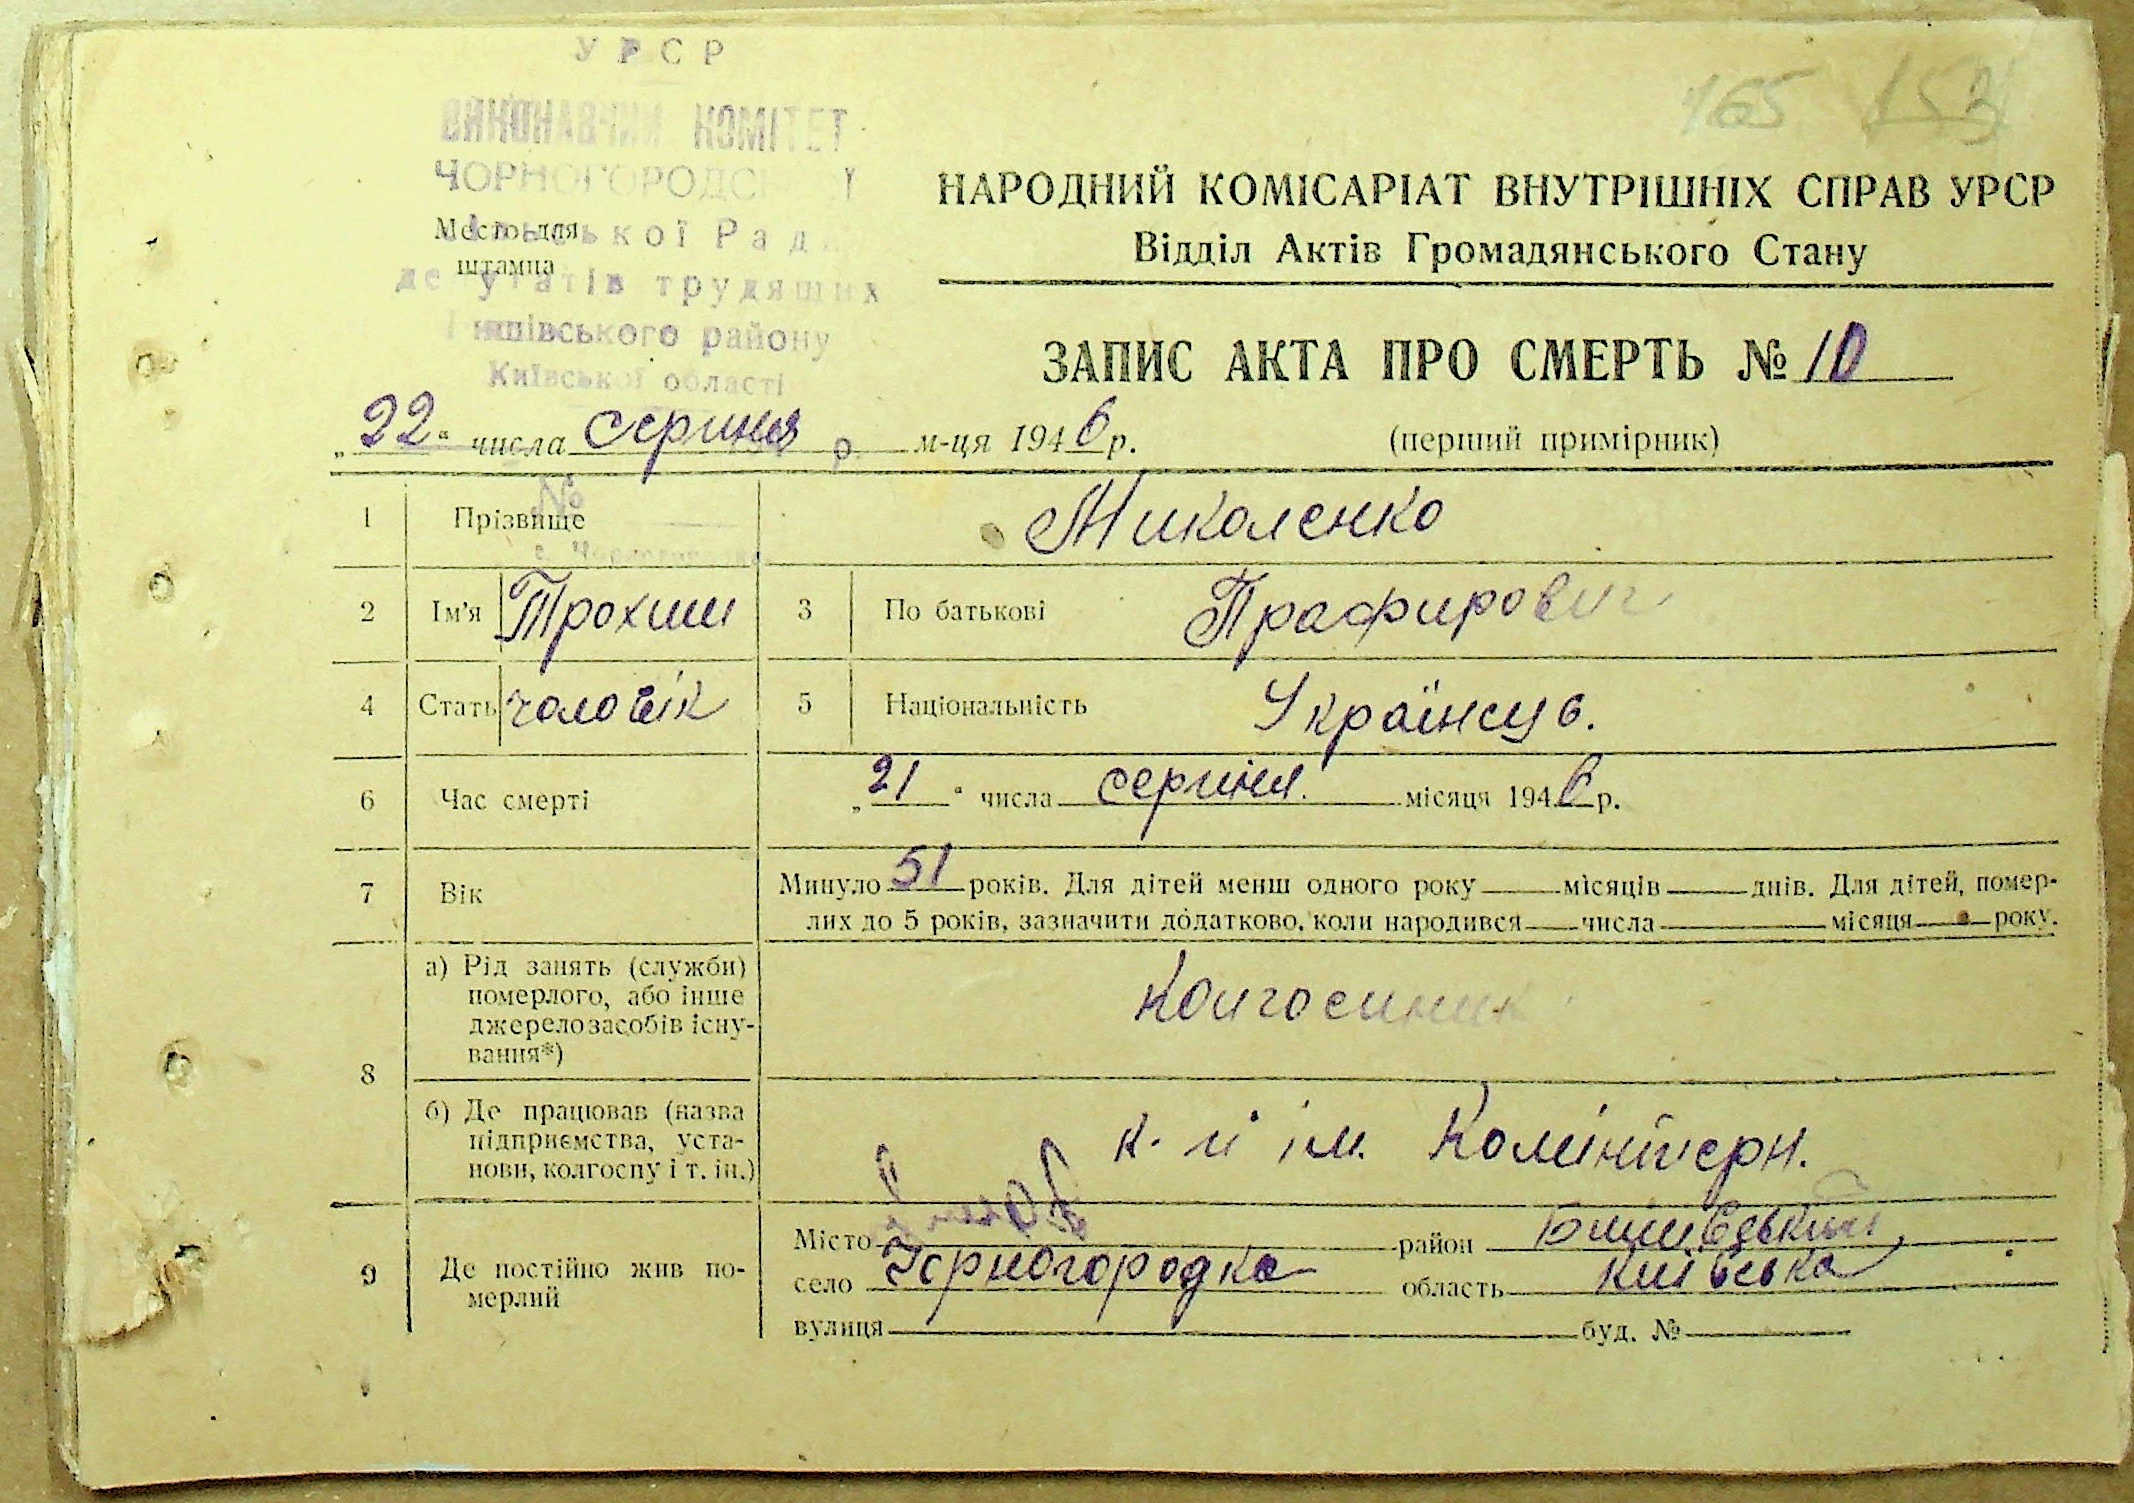 165 153
УРСР
ВИКОНАВЧИЙ КОМІТЕТ
ЧОРНОГОРОДС
Место для
штампа
сільської Рад
депутатів трудящих
шівського району
Київської області
НАРОДНИЙ КОМІСАРІАТ ВНУТРІШНІХ СПРАВ УРСР
Відділ Актів Громадянського Стану
ЗАПИС АКТА ПРО СМЕРТЬ № 10
(перший примірник)
„22“ числа серпня р. м-ця 1946 р.
№
1 Прізвище Миколенко
2 Ім'я Трохим 3 По батькові Прафирович
4 Стать чоловік 5 Національність Українець.
6 Час смерті „21“ числа серпня. місяця 1946 р.
7 Вік Минуло 51 років. Для дітей менш одного року місяців днів. Для дітей, помер-
лих до 5 років, зазначити додатково, коли народився числа місяця року.
8 а) Рід занять (служби)
померлого, або інше
джерело засобів існу-
вання*)
Колгоспник
б) Де працював (назва
підприємства, уста-
нови, колгоспу і т. ін.)
к-п ім. Комінтерн.
9 Де постійно жив по-
мерлий
Місто район
село Чорногородка область Київська
вулиця буд. №